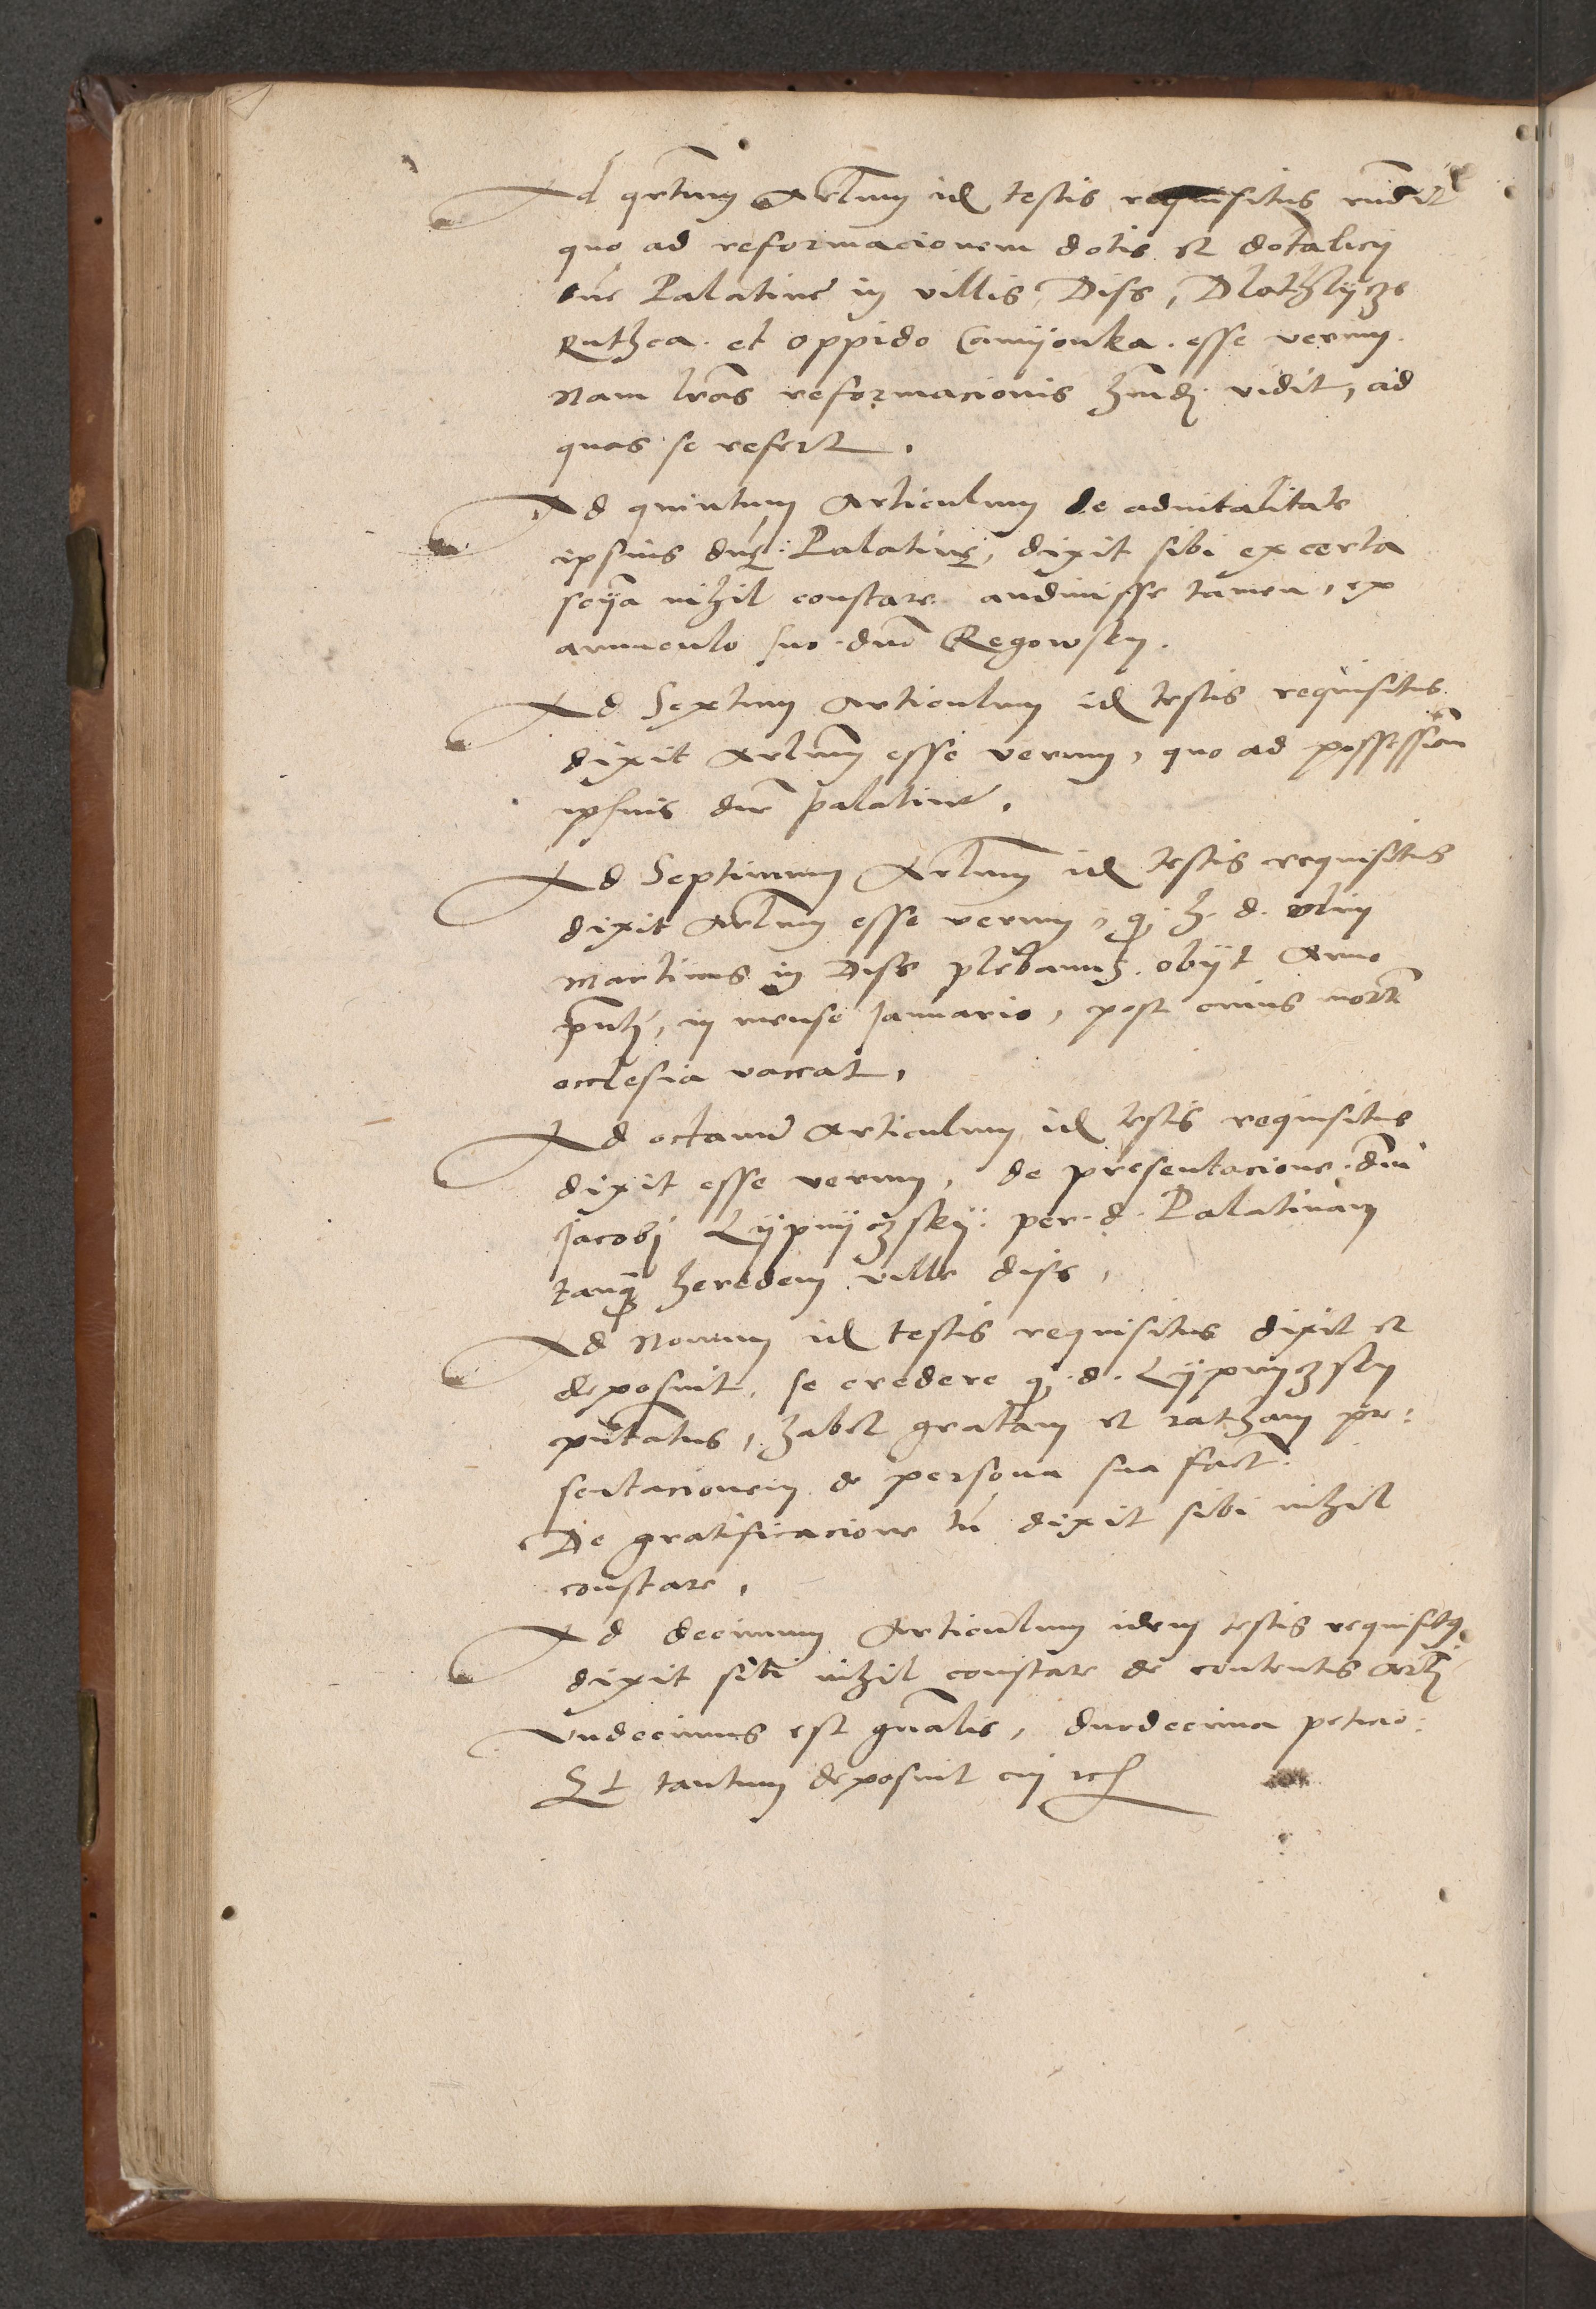 Ad qrtum Artlum id testis requisitus rndit
quo ad reformacionem dotis et dotalicy
dne Palatine in villis Diss, Dlothlycze
Ruthca. et oppido Camyonka. esse verum.
Nam lras reformacionis hmdi vidit, ad
quas se refert.
Ad quintum Articulum de aduitalitate
ipsius dne: Palatine, dixit sibi ex certa
scya nihil constare audiuisse tamen, ex
auunculo suo dno Regowsky.
Ad Sextum Articulum id testis requisitus
dixit Artlum esse verum, quo ad possessiom
ipsius dne palatine.
Ad Septimum Artlum id testis requisitus
dixit Artlum esse verum, q h. d. olim
Martinus in Diss plebanus. obyt Anno
pnti, in mense Januario, post cuius morte
ecclesia vaccat,
Ad octauu Articulum id testis requisitus
dixit esse verum, de presentacione dni
Jacobi Lypnyczsky: per d. Palatinam
tanq heredem ville diss,
Ad Nonum id testis requisitus dixit et
deposuit, se credere q d. Lypnyczsky
pntatus, habet gratam et ratham pre:
sentacionem de persona sua fact.
De gratificacione tn dixit sibi nihil
constare,
Ad decimum Articulum idem testis requisitus
dixit sibi nihil constare de contentis Artli
Vndecimus est gnalis, duodecima peticio:
Et tantum deposuit